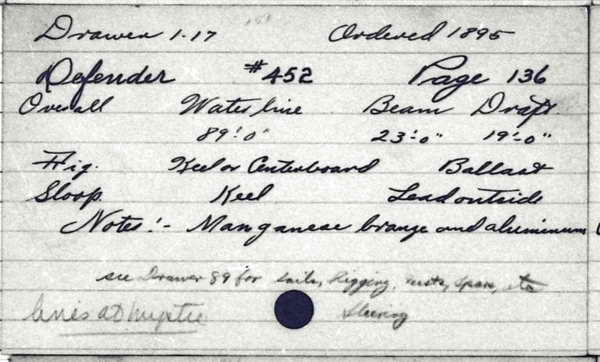 Drawer 1-17 Ordered 1895
Defender #452 Page 136
Overall Waterline Beam Draft
89'-0" 23'-0" 19'-0"
Rig. Keel or Centerboard Ballast
Sloop. Keel Lead outside
Notes:- Manganese bronze and aluminum
see Drawer 89 for sails, Rigging, masts, spars, etc
Lines at Mystic Steering